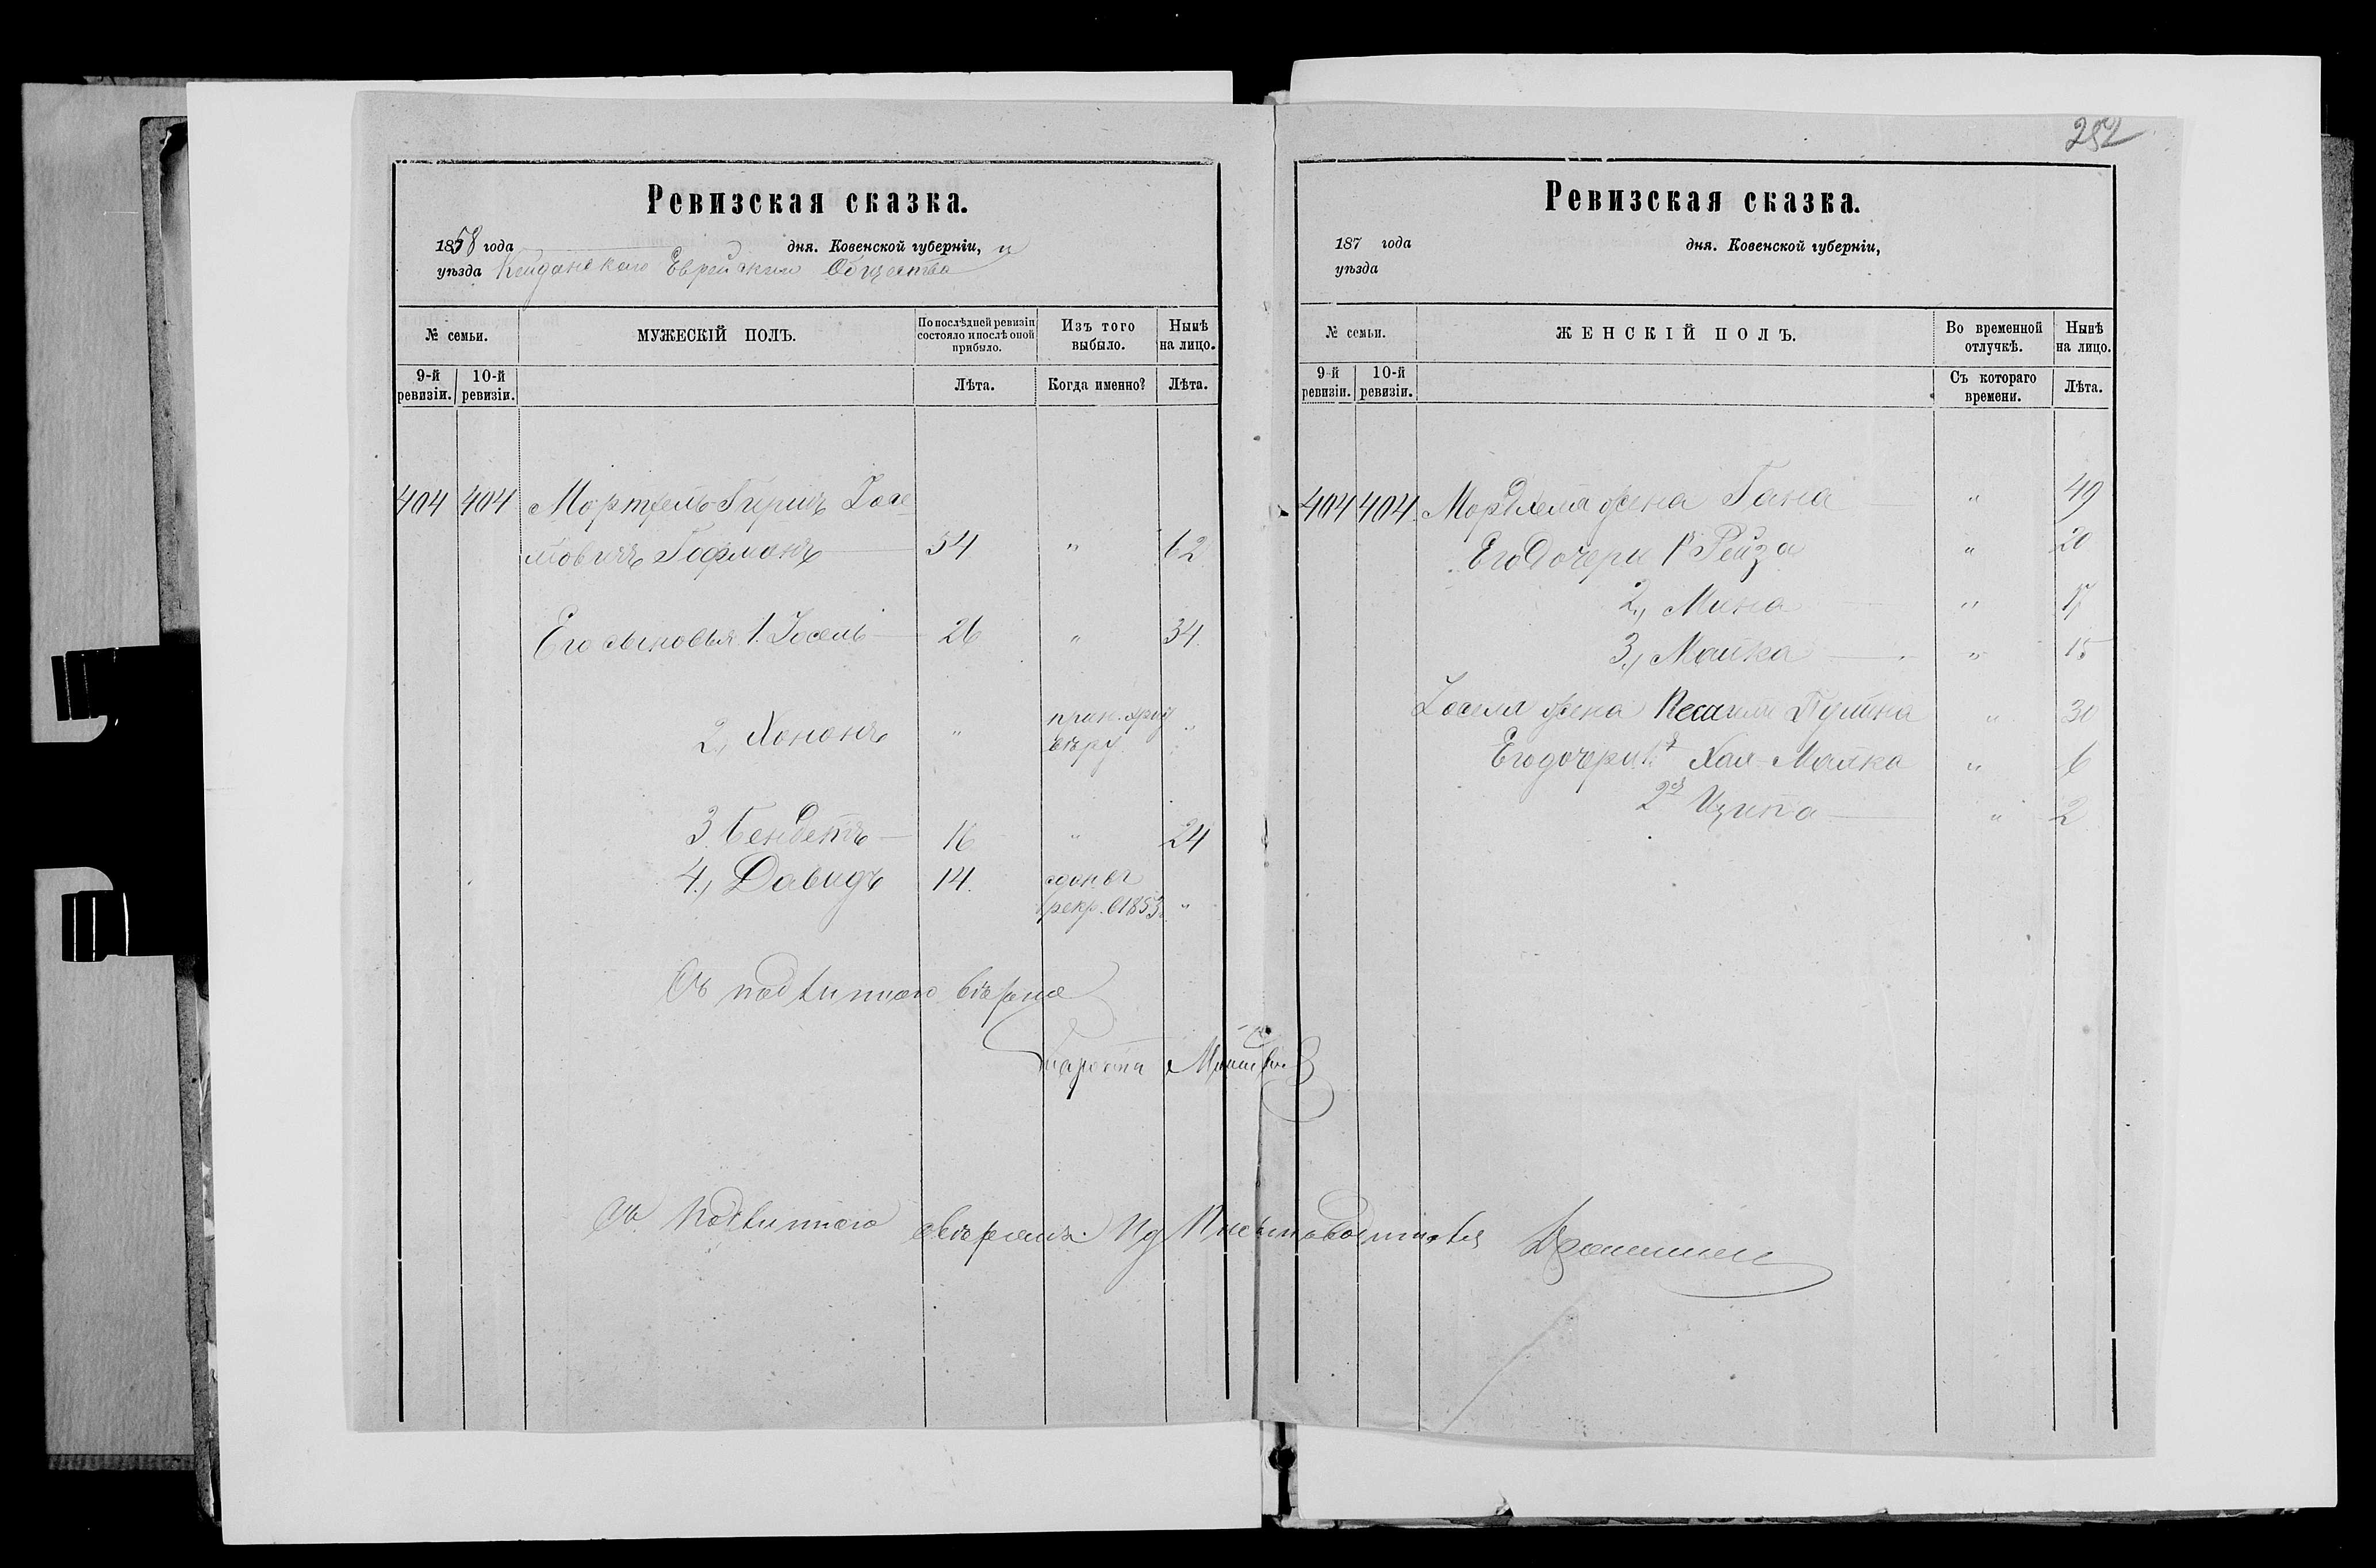 252
Ревизская сказка.
1858 года дня. Ковенской губерніи, и
уѣзда Кейданскаго Еврейскаго Общества
№ семьи.
МУЖЕСКІЙ ПОЛЪ.
По послѣдней ревизіи состояло и послѣ оной прибыло.
Изъ того выбыло.
Нынѣ на лицо.
9-й ревизіи.
10-й ревизіи.
Лѣта.
Когда именно?
Лѣта.
404 404 Мортхель Гиршъ Иосе
Гофманъ 54 " 62
Его сыновья 1. Иосель 26 " 34.
2, Хононъ " прин. хрис "
вѣру.
3. Бендетъ 16 " 24
4, Давидъ 14.
рекр. в 1853 "
Съ подлиннымъ вѣрно
Староста
Съ подлиннымъ
Ревизская сказка.
187 года дня. Ковенской губерніи,
уѣзда
№ семьи.
ЖЕНСКІЙ ПОЛЪ.
Во временной отлучкѣ.
Нынѣ на лицо.
9-й ревизіи.
10-й ревизіи.
Съ котораго времени.
Лѣта.
404 404. Мордхеля жена Гана " 49
Его дочери 1я Рейза " 20
2, Мина " 17
3, Малка " 15
Иоселя жена " 30
Его дочери 1я Хая Малка " 6
2я Ципа " 2